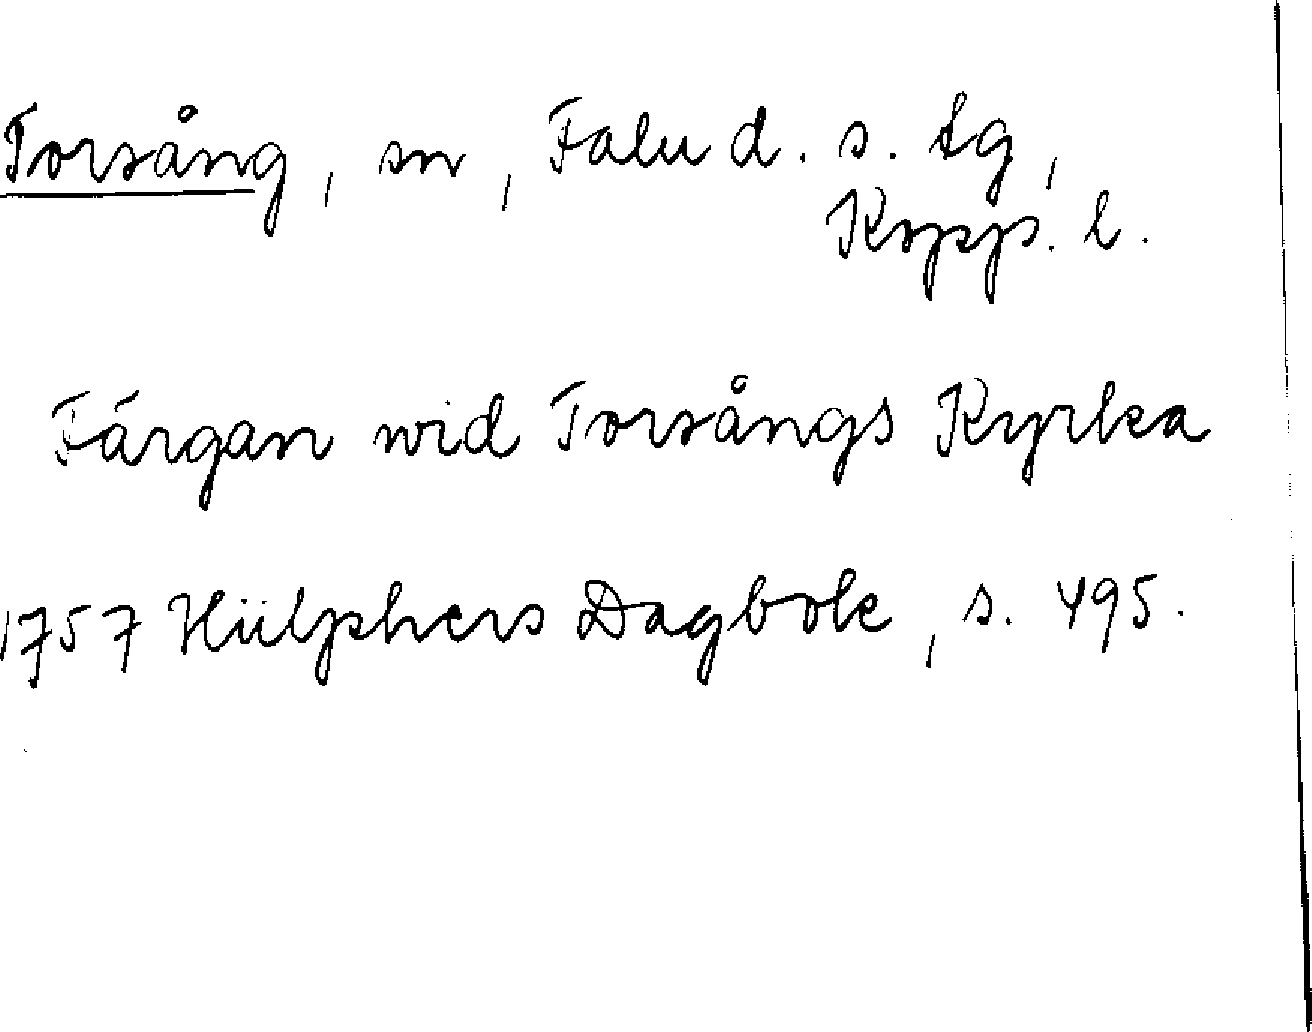 Torsång, sn, Falu d. s. tg,
Kopp. l.
Färgan wid Torsångs Kyrka
1757 Hülphers Dagbok, s. 495.